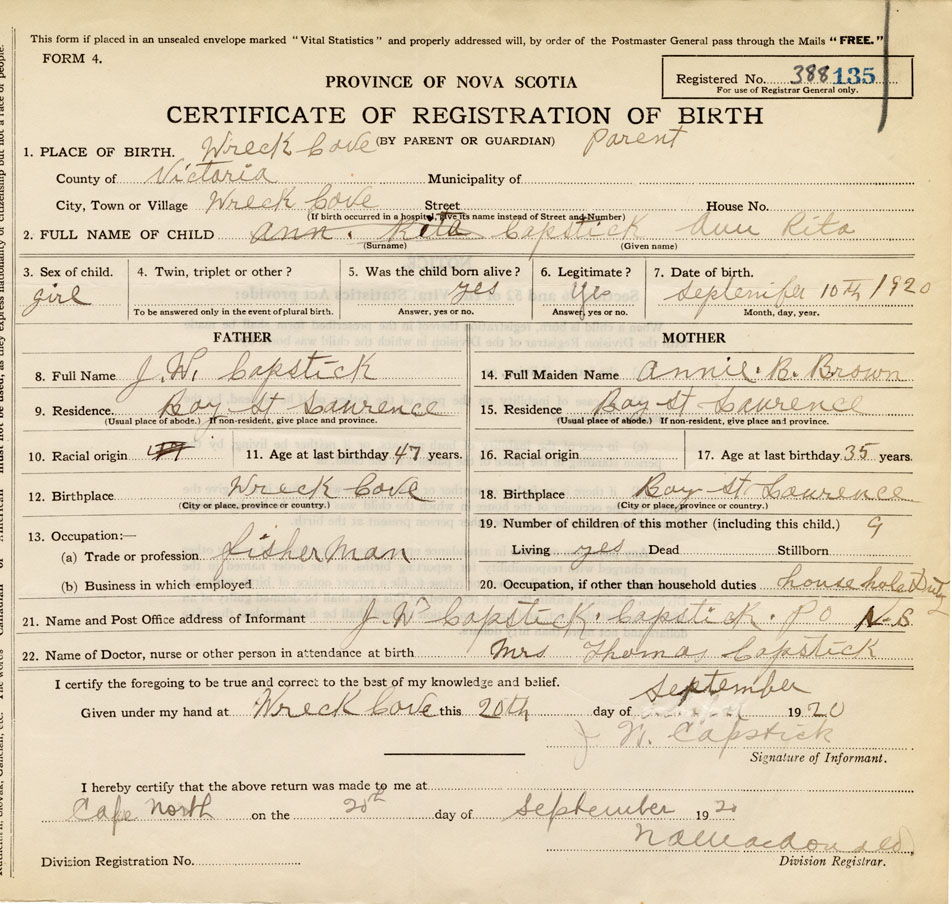 This form if placed in an unsealed envelope marked "Vital Statistics" and properly addressed will, by order of the Postmaster General pass through the Mails "FREE."
FORM 4.
Registered No. 388 135
For use of Registrar General only.
PROVINCE OF NOVA SCOTIA
CERTIFICATE OF REGISTRATION OF BIRTH
(BY PARENT OR GUARDIAN) Parent
1. PLACE OF BIRTH. Wreck Cove
County of Victoria Municipality of
City, Town or Village Wreck Cove Street House No.
(If birth occurred in a hospital, give its name instead of Street and Number)
2. FULL NAME OF CHILD Ann. Rita Capstick Ann Rita
(Surname) (Given name)
3. Sex of child. 4. Twin, triplet or other? 5. Was the child born alive? 6. Legitimate? 7. Date of birth.
girl yes Yes September 10th 1920
To be answered only in the event of plural birth. Answer, yes or no. Answer, yes or no. Month, day, year.
FATHER MOTHER
8. Full Name J. W. Capstick 14. Full Maiden Name Annie. B. Brown
9. Residence. Bay St Laurence 15. Residence Bay St Laurence
(Usual place of abode.) If non-resident, give place and province. (Usual place of abode.) If non-resident, give place and province.
10. Racial origin 11. Age at last birthday 47 years. 16. Racial origin. 17. Age at last birthday 35 years.
12. Birthplace Wreck Cove 18. Birthplace Bay St Laurence
(City or place, province or country.) (City or place, province or country.)
13. Occupation:— 19. Number of children of this mother (including this child.) 9
(a) Trade or profession fisherman Living yes Dead Stillborn
(b) Business in which employed 20. Occupation, if other than household duties household Duty
21. Name and Post Office address of Informant J. W. Capstick. Capstick. P O N.S.
22. Name of Doctor, nurse or other person in attendance at birth Mrs Thomas Capstick
I certify the foregoing to be true and correct to the best of my knowledge and belief.
Given under my hand at Wreck Cove this 20th day of September 1920
W. Capstick
Signature of Informant.
I hereby certify that the above return was made to me at
Cape North on the 20th day of September 1920
Division Registration No. Division Registrar.